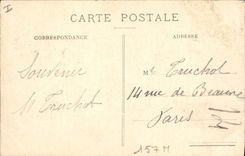 I
CARTE POSTALE
CORRESPONDANCE
ADRESSE
Souvenir
M Truchot
Mr Truchot
14 rue de Beaune
Paris
157M